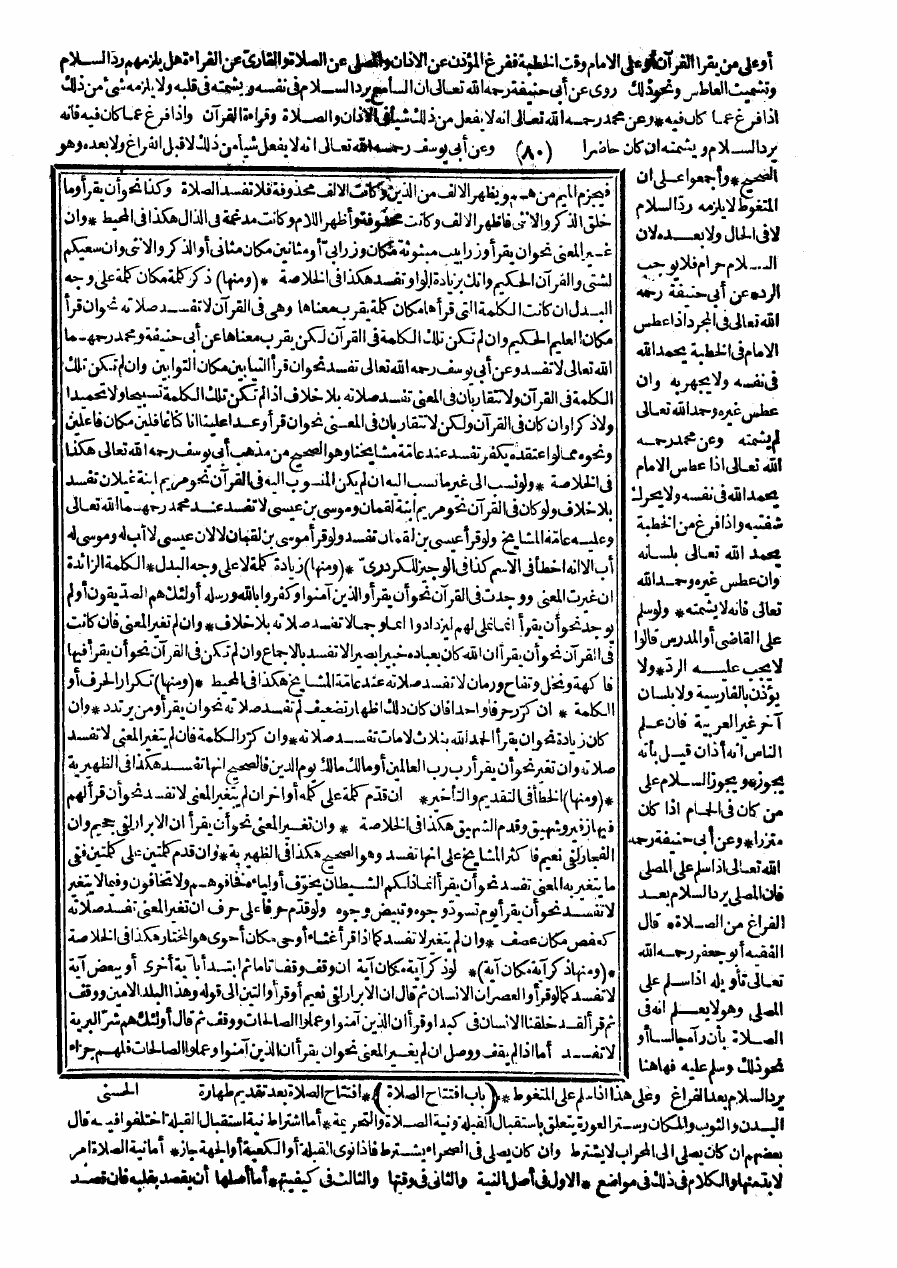 أو على من يقرأ القرآن أو على الامام وقت الخطبة ففرغ المؤذن عن الاذان والمصلى عن الصلاة والقارئ عن القراءة هل يلزمهم رد السلام
وتشميت العاطس ونحو ذلك روى عن أبى حنيفة رحمه الله تعالى ان السامع يرد السلام فى نفسه ويشمته فى قلبه ولا يلزمه شئ من ذلك
اذا فرغ عما كان فيه * وعن محمد رحمه الله تعالى انه لا يفعل من ذلك شيأ فى الاذان والصلاة وقراءة القرآن واذا فرغ عما كان فيه فانه
يرد السلام ويشمته ان كان حاضرا (٨٠) وعن أبى يوسف رحمه الله تعالى انه لا يفعل شيأ من ذلك لا قبل الفراغ ولا بعده وهو
الصحيح * وأجمعوا على ان
المتغوط لا يلزمه رد السلام
لا فى الحال ولا بعده لان
السلام حرام فلا يوجب
الرد * عن أبى حنيفة رحمه
الله تعالى فى المجرد اذا عطس
الامام فى الخطبة يحمد الله
فى نفسه ولا يجهر به وان
عطس غيره وحمد الله تعالى
لم يشمته وعن محمد رحمه
الله تعالى اذا عطس الامام
يحمد الله فى نفسه ولا يحرك
شفتيه واذا فرغ من الخطبة
يحمد الله تعالى بلسانه
وان عطس غيره وحمد الله
تعالى فانه لا يشمته * ولو سلم
على القاضى أو المدرس قالوا
لا يجب عليه الرد * ولا
يؤذن بالفارسية ولا بلسان
آخر غير العربية فان علم
الناس انه أذان قيل بأنه
يجوز * ويجوز السلام على
من كان فى الحمام اذا كان
متزرا * وعن أبى حنيفة رحمه
الله تعالى اذا سلم على المصلى
فان المصلى يرد السلام بعد
الفراغ من الصلاة * قال
الفقيه أبو جعفر رحمه الله
تعالى تأويله اذا سلم على
المصلى وهو لا يعلم انه فى
الصلاة بأن رآه جالسا أو
نحو ذلك وسلم عليه فهاهنا
فيجزم الميم من هم ويظهر الالف من الذين وكانت الالف محذوفة فلا تفسد الصلاة وكذا نحو أن يقرأ وما
خلق الذكر والانثى فاظهر الالف وكانت محذوفة وأظهر اللام وكانت مدغمة فى الذال هكذا فى المحيط * وان
غير المعنى نحو ان يقرأ وزرابيب مبثوثة مكان وزرابى أو مثانين مكان مثانى أو الذكر والانثى وان سعيكم
لشتى والقرآن الحكيم وانك بزيادة الواو تفسد هكذا فى الخلاصة * (ومنها) ذكر كلمة مكان كلمة على وجه
البدل ان كانت الكلمة التى قرأها مكان كلمة يقرب معناها وهى فى القرآن لا تفسد صلاته نحو ان قرأ
مكان العليم الحكيم وان لم تكن تلك الكلمة فى القرآن لكن يقرب معناها عن أبى حنيفة ومحمد رحمهما
الله تعالى لا تفسد وعن أبى يوسف رحمه الله تعالى تفسد نحو ان قرأ التيابين مكان التوابين وان لم تكن تلك
الكلمة فى القرآن ولا تتقاربان فى المعنى تفسد صلاته بلا خلاف اذا لم تكن تلك الكلمة تسبيحا ولا تحميدا
ولا ذكرا وان كان فى القرآن ولكن لا تتقاربان فى المعنى نحو ان قرأ وعدا علينا انا كنا غافلين مكان فاعلين
ونحوه مما لو اعتقده يكفر تفسد عند عامة مشايخنا وهو الصحيح من مذهب أبى يوسف رحمه الله تعالى هكذا
فى الخلاصة * ولو نسب الى غير ما نسب اليه ان لم يكن المنسوب اليه فى القرآن نحو مريم ابنة غيلان تفسد
بلا خلاف ولو كان فى القرآن نحو مريم ابنة لقمان وموسى بن عيسى لا تفسد عند محمد رحمهما الله تعالى
وعليه عامة المشايخ ولو قرأ عيسى بن لقمان تفسد ولو قرأ موسى بن لقمان لا لان عيسى لا أب له وموسى له
أب الا انه اخطأ فى الاسم كذا فى الوجيز للكردرى * (ومنها) زيادة كلمة لا على وجه البدل * الكلمة الزائدة
ان غيرت المعنى ووجدت فى القرآن نحو أن يقرأ والذين آمنوا وكفروا بالله ورسله أولئك هم الصديقون أو لم
يوجد نحو أن يقرأ انما نملى لهم ليزدادوا اثما وجمالا تفسد صلاته بلا خلاف * وان لم تغير المعنى فان كانت
فى القرآن نحو أن يقرأ ان الله كان بعباده خبيرا بصيرا لا تفسد بالاجماع وان لم تكن فى القرآن نحو أن يقرأ فيها
فاكهة ونخل وتفاح ورمان لا تفسد صلاته عند عامة المشايخ هكذا فى المحيط * (ومنها) تكرار الحرف أو
الكلمة * ان كرر حرفا واحدا فان كان ذلك اظهار تضعيف لم تفسد صلاته نحو ان يقرأ ومن يرتدد * وان
كان زيادة نحو ان يقرأ الحمد لله بثلاث لامات تفسد صلاته * وان كرر الكلمة فان لم يتغير المعنى لا تفسد
صلاته وان تغير نحو أن يقرأ رب رب العالمين أو مالك مالك يوم الدين فالصحيح انها تفسد هكذا فى الظهيرية
* (ومنها) الخطأ فى التقديم والتأخير * ان قدم كلمة على كلمة أو أخر ان لم يتغير المعنى لا تفسد نحو أن قرأ لهم
فيها زفير وشهيق وقدم الشهيق هكذا فى الخلاصة * وان تغير المعنى نحو أن يقرأ ان الابرار لفى جحيم وان
الفجار لفى نعيم فاكثر المشايخ على انها تفسد وهو الصحيح هكذا فى الظهيرية * وان قدم كلمتين على كلمتين ففى
ما يتغير به المعنى تفسد نحو أن يقرأ انما ذلكم الشيطان يخوف أولياءه فخافوهم ولا تخافون وفيما لا يتغير
لا تفسد نحو أن يقرأ يوم تسود وجوه وتبيض وجوه ولو قدم حرفا على حرف ان تغير المعنى تفسد صلاته
كعفص مكان عصف * وان لم يتغير لا تفسد كما اذا قرأ غثاء أوحى مكان أحوى هو المختار هكذا فى الخلاصة
* (ومنها ذكر آية مكان آية) * لو ذكر آية مكان آية ان وقف وقفا تاما ثم ابتدأ بآية أخرى أو ببعض آية
لا تفسد كما لو قرأ والعصر ان الانسان ثم قال ان الابرار لفى نعيم أو قرأ والتين الى قوله وهذا البلد الامين ووقف
ثم قرأ لقد خلقنا الانسان فى كبد أو قرأ ان الذين آمنوا وعملوا الصالحات ووقف ثم قال أولئك هم شر البرية
لا تفسد أما اذا لم يقف ووصل ان لم يغير المعنى نحو ان يقرأ ان الذين آمنوا وعملوا الصالحات فلهم جزاء
الحسنى
يرد السلام بعد الفراغ وعلى هذا اذا سلم على المتغوط * (باب افتتاح الصلاة) * افتتاح الصلاة بعد تقديم طهارة
البدن والثوب والمكان وستر العورة يتعلق باستقبال القبلة ونية الصلاة والتحريمة * أما اشتراط نية استقبال القبلة اختلفوا فيه قال
بعضهم ان كان يصلى الى المحراب لا يشترط وان كان يصلى فى الصحراء يشترط فاذا نوى القبلة أو الكعبة أو الجهة جاز * أما نية الصلاة أمر
لا بد منها والكلام فى ذلك فى مواضع * الاول فى أصل النية والثانى فى وقتها والثالث فى كيفيتها * أما أصلها أن يقصد بقلبه فان قصد